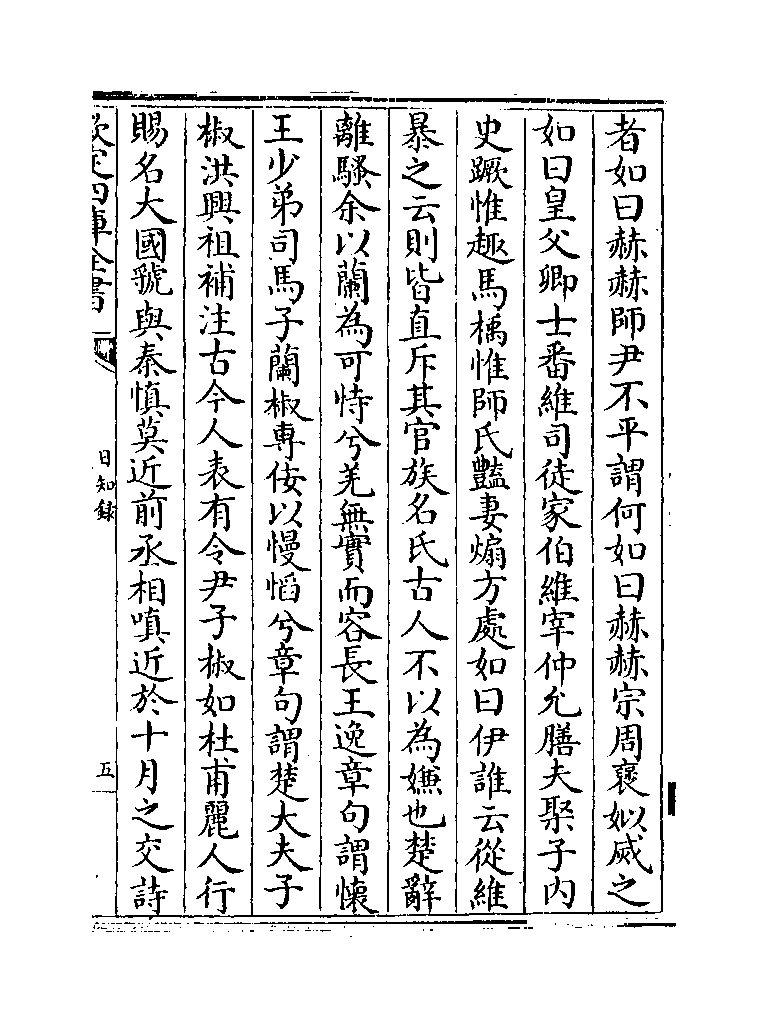 者如曰赫赫師尹不平謂何如曰赫赫宗周襃姒烕之
如曰皇父卿士番維司徒家伯維宰仲允膳夫棸子内
史蹶惟趣馬楀惟師氏豔妻煽方處如曰伊誰云從維
暴之云則皆直斥其官族名氏古人不以為嫌也楚辭
離騷余以蘭為可恃兮羌無實而容長王逸章句謂懷
王少弟司馬子蘭椒專佞以慢慆兮章句謂楚大夫子
椒洪興祖補注古今人表有令尹子椒如杜甫麗人行
賜名大國虢與秦慎莫近前丞相嗔近於十月之交詩
欽定四庫全書
日知錄
五